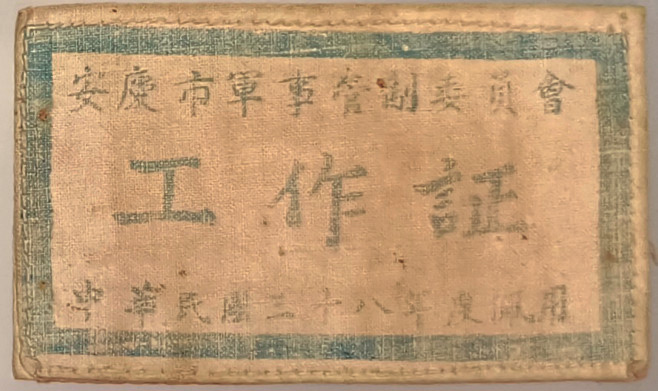 安慶市軍事管制委員會
工作証
中華民國三十八年度佩用